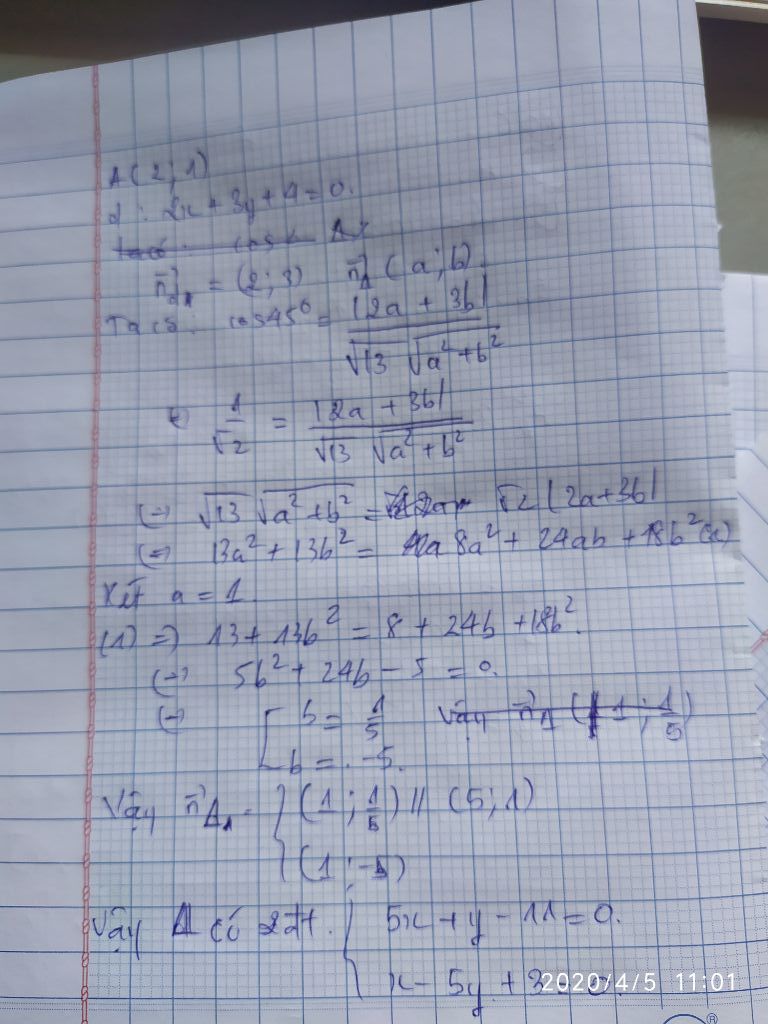 A(2;1)
d: 2x + 3y + 4 = 0.
Ta có: cos
n⃗d₁ = (2;3) n⃗Δ (a;b).
Ta có: cos45⁰ = |2a + 3b| / √13 √a²+b²
(=) 1/√2 = |2a + 3b| / √13 √a²+b²
(=) √13 √a²+b² = √2 |2a+3b|
(=) 13a² + 13b² = 8a² + 24ab + 18b² (1)
Xét a = 1.
(1) =) 13 + 13b² = 8 + 24b + 18b².
(=) 5b² + 24b - 5 = 0.
(=) [ b = 1/5 Vậy n⃗Δ (1; 1/5)
b = -5.
Vậy n⃗Δ₁ = { (1; 1/5) // (5;1)
(1; -5)
Vậy Δ có 2đt. { 5x + y - 11 = 0.
x - 5y + 3 = 0.
2020/4/5 11:01